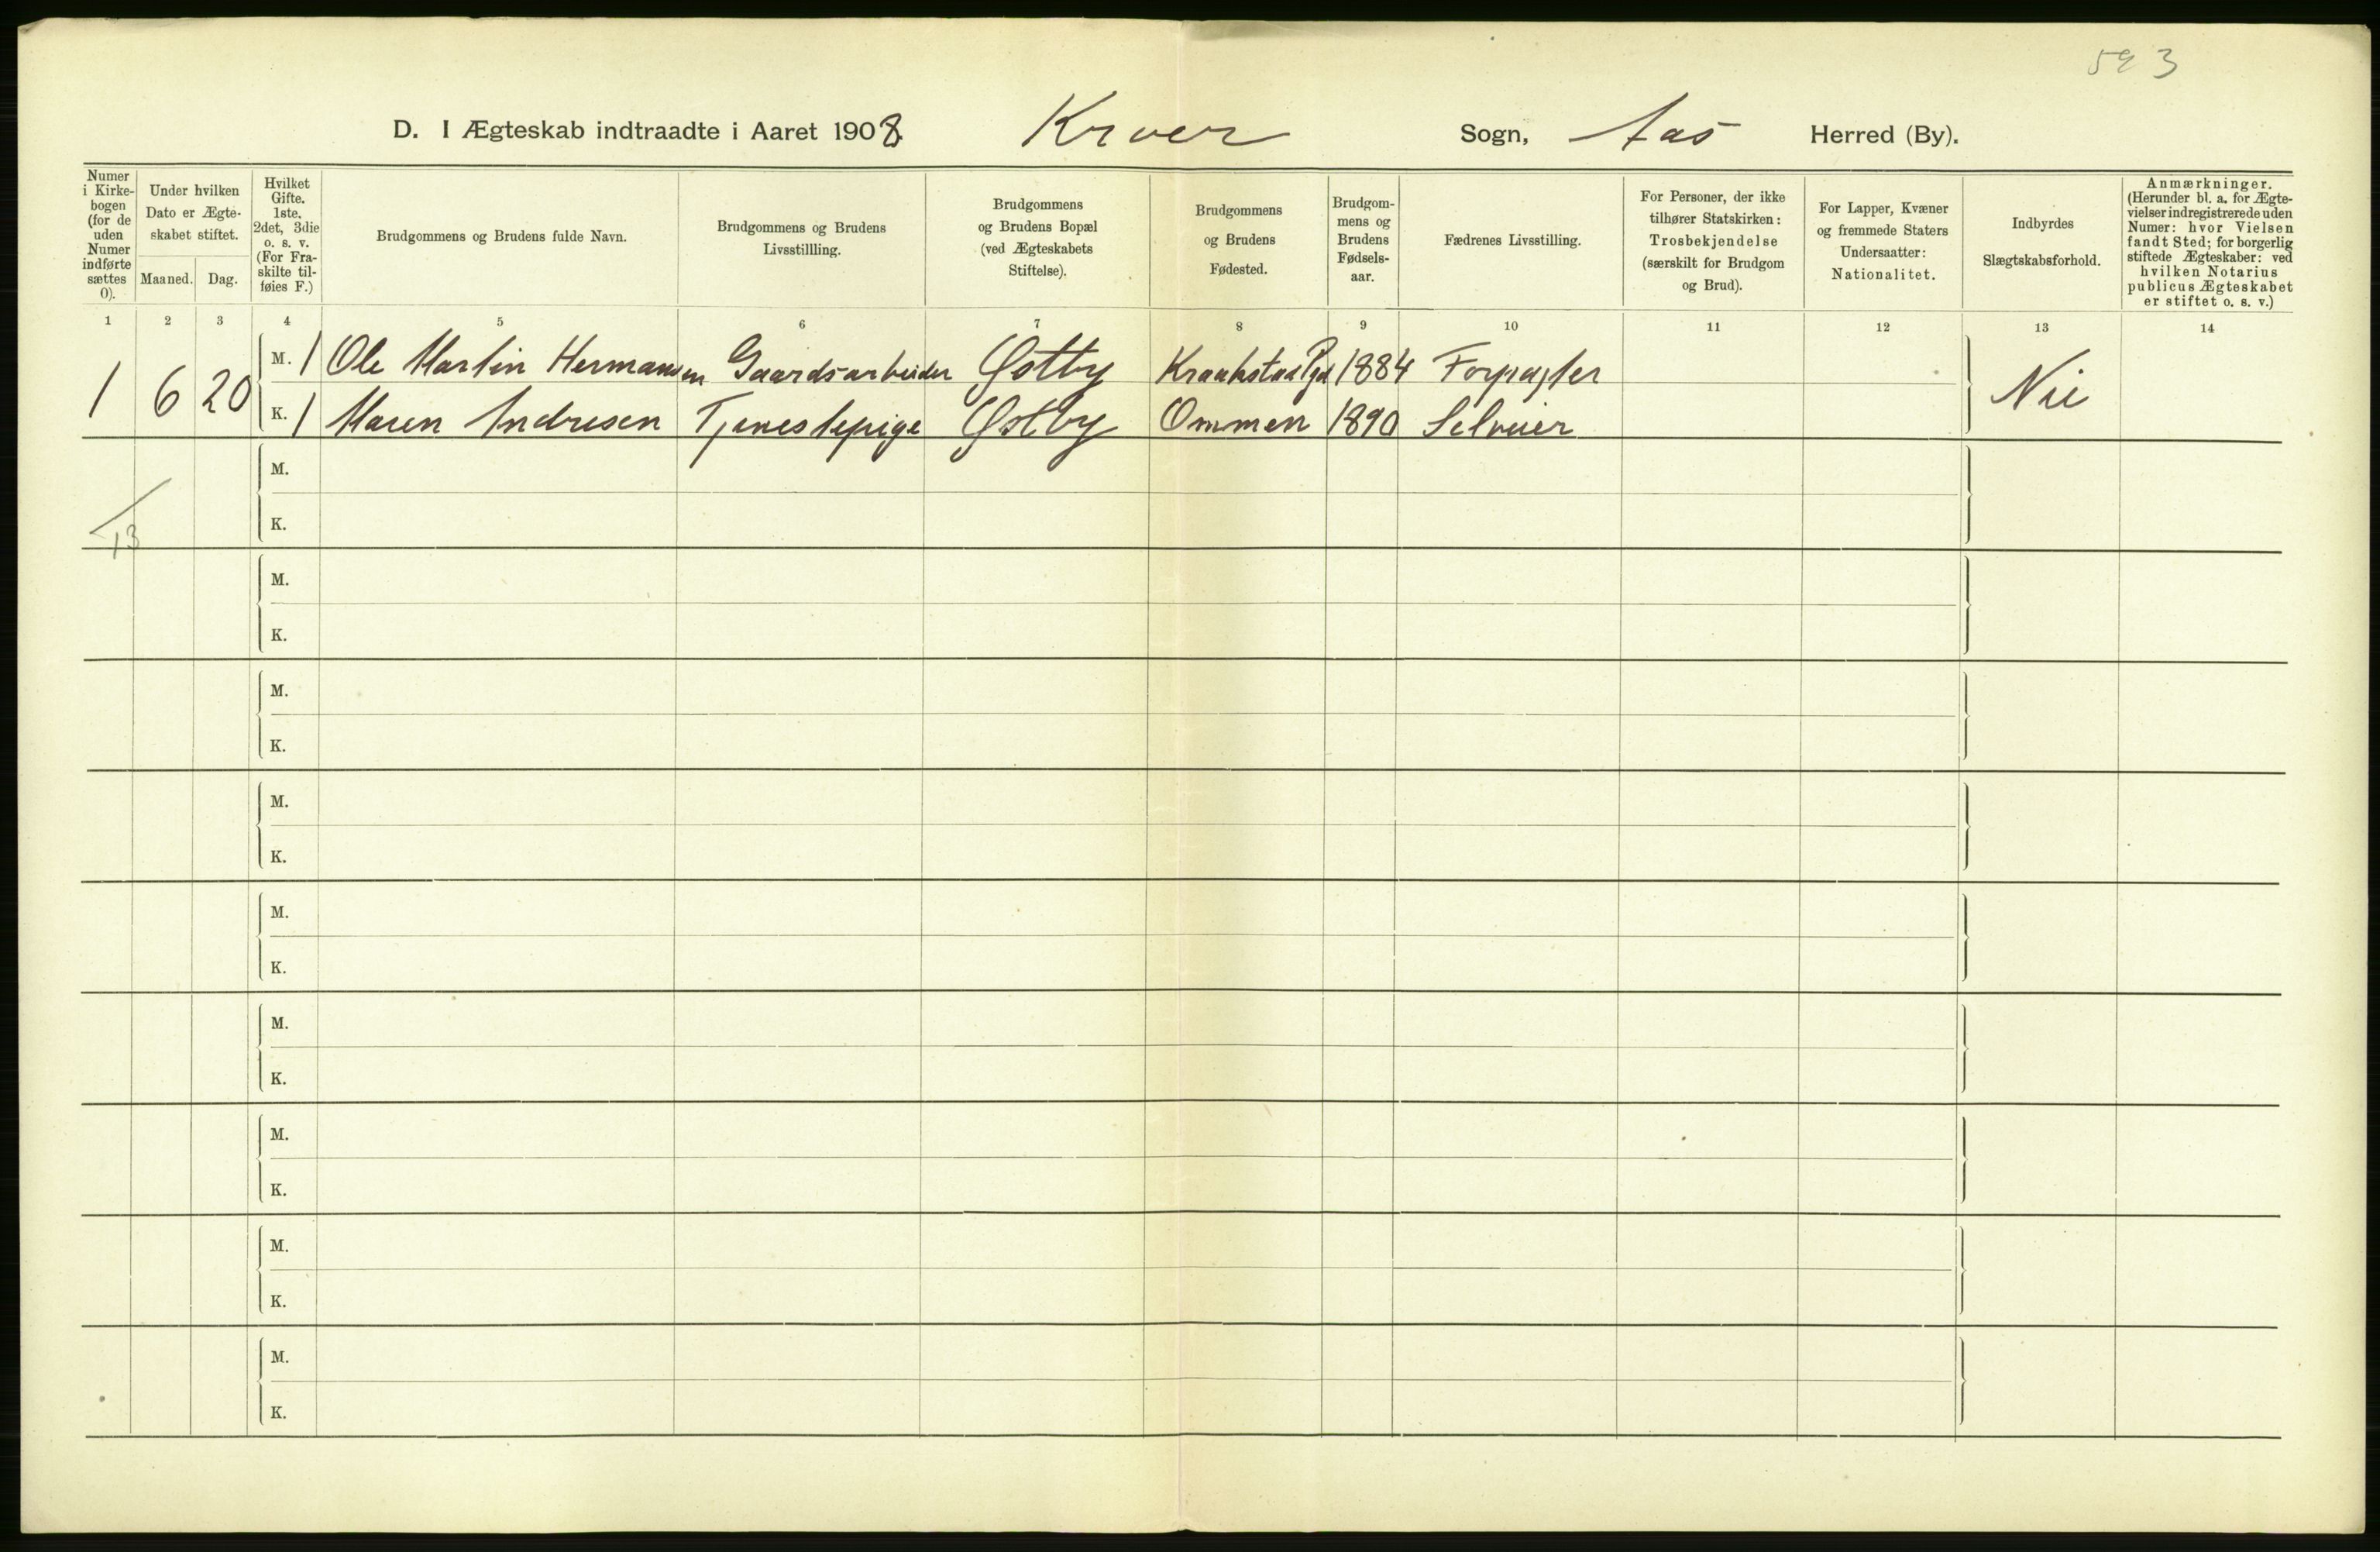 593
D. I Ægteskab indtraadte i Aaret 1908. Kroer Sogn, Aas Herred (By).
Numer
i Kirke-
bogen
(for de
uden
Numer
indførte
sættes
0).
Under hvilken
Dato er Ægte-
skabet stiftet.
Maaned. Dag.
Hvilket
Gifte.
1ste,
2det, 3die
o. s. v.
(For Fra-
skilte til-
føies F.)
Brudgommens og Brudens fulde Navn.
Brudgommens og Brudens
Livsstillling.
Brudgommens
og Brudens Bopæl
(ved Ægteskabets
Stiftelse).
Brudgommens
og Brudens
Fødested.
Brudgom-
mens og
Brudens
Fødsels-
aar.
Fædrenes Livsstilling.
For Personer, der ikke
tilhører Statskirken:
Trosbekjendelse
(særskilt for Brudgom
og Brud).
For Lapper, Kvæner
og fremmede Staters
Undersaatter:
Nationalitet.
Indbyrdes
Slægtskabsforhold.
Anmærkninger.
(Herunder bl. a. for Ægte-
vielser indregistrerede uden
Numer: hvor Vielsen
fandt Sted; for borgerlig
stiftede Ægteskaber: ved
hvilken Notarius
publicus Ægteskabet
er stiftet o. s. v.)
1 2 3 4 5 6 7 8 9 10 11 12 13 14
M. 1 Ole Martin Hermansen Gaardsarbeider Østby Kraakstad Pgd 1884 Forpagter
1 6 20 Nei
K. 1 Maren Andresen Tjenestepige Østby Ommen 1890 Selveier
M.
K.
13
M.
K.
M.
K.
M.
K.
M.
K.
M.
K.
M.
K.
M.
K.
M.
K.